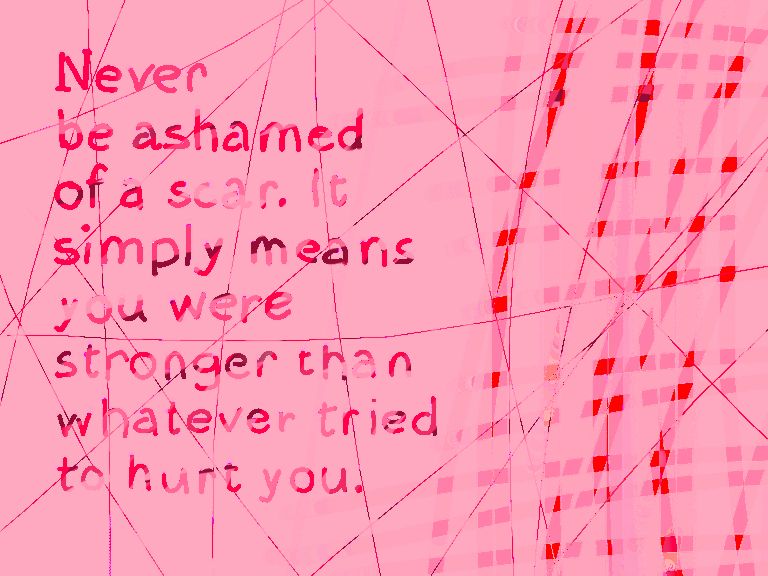 Never
be ashamed
of a scar. It
simply means
you were
stronger than
whatever tried
to hurt you.